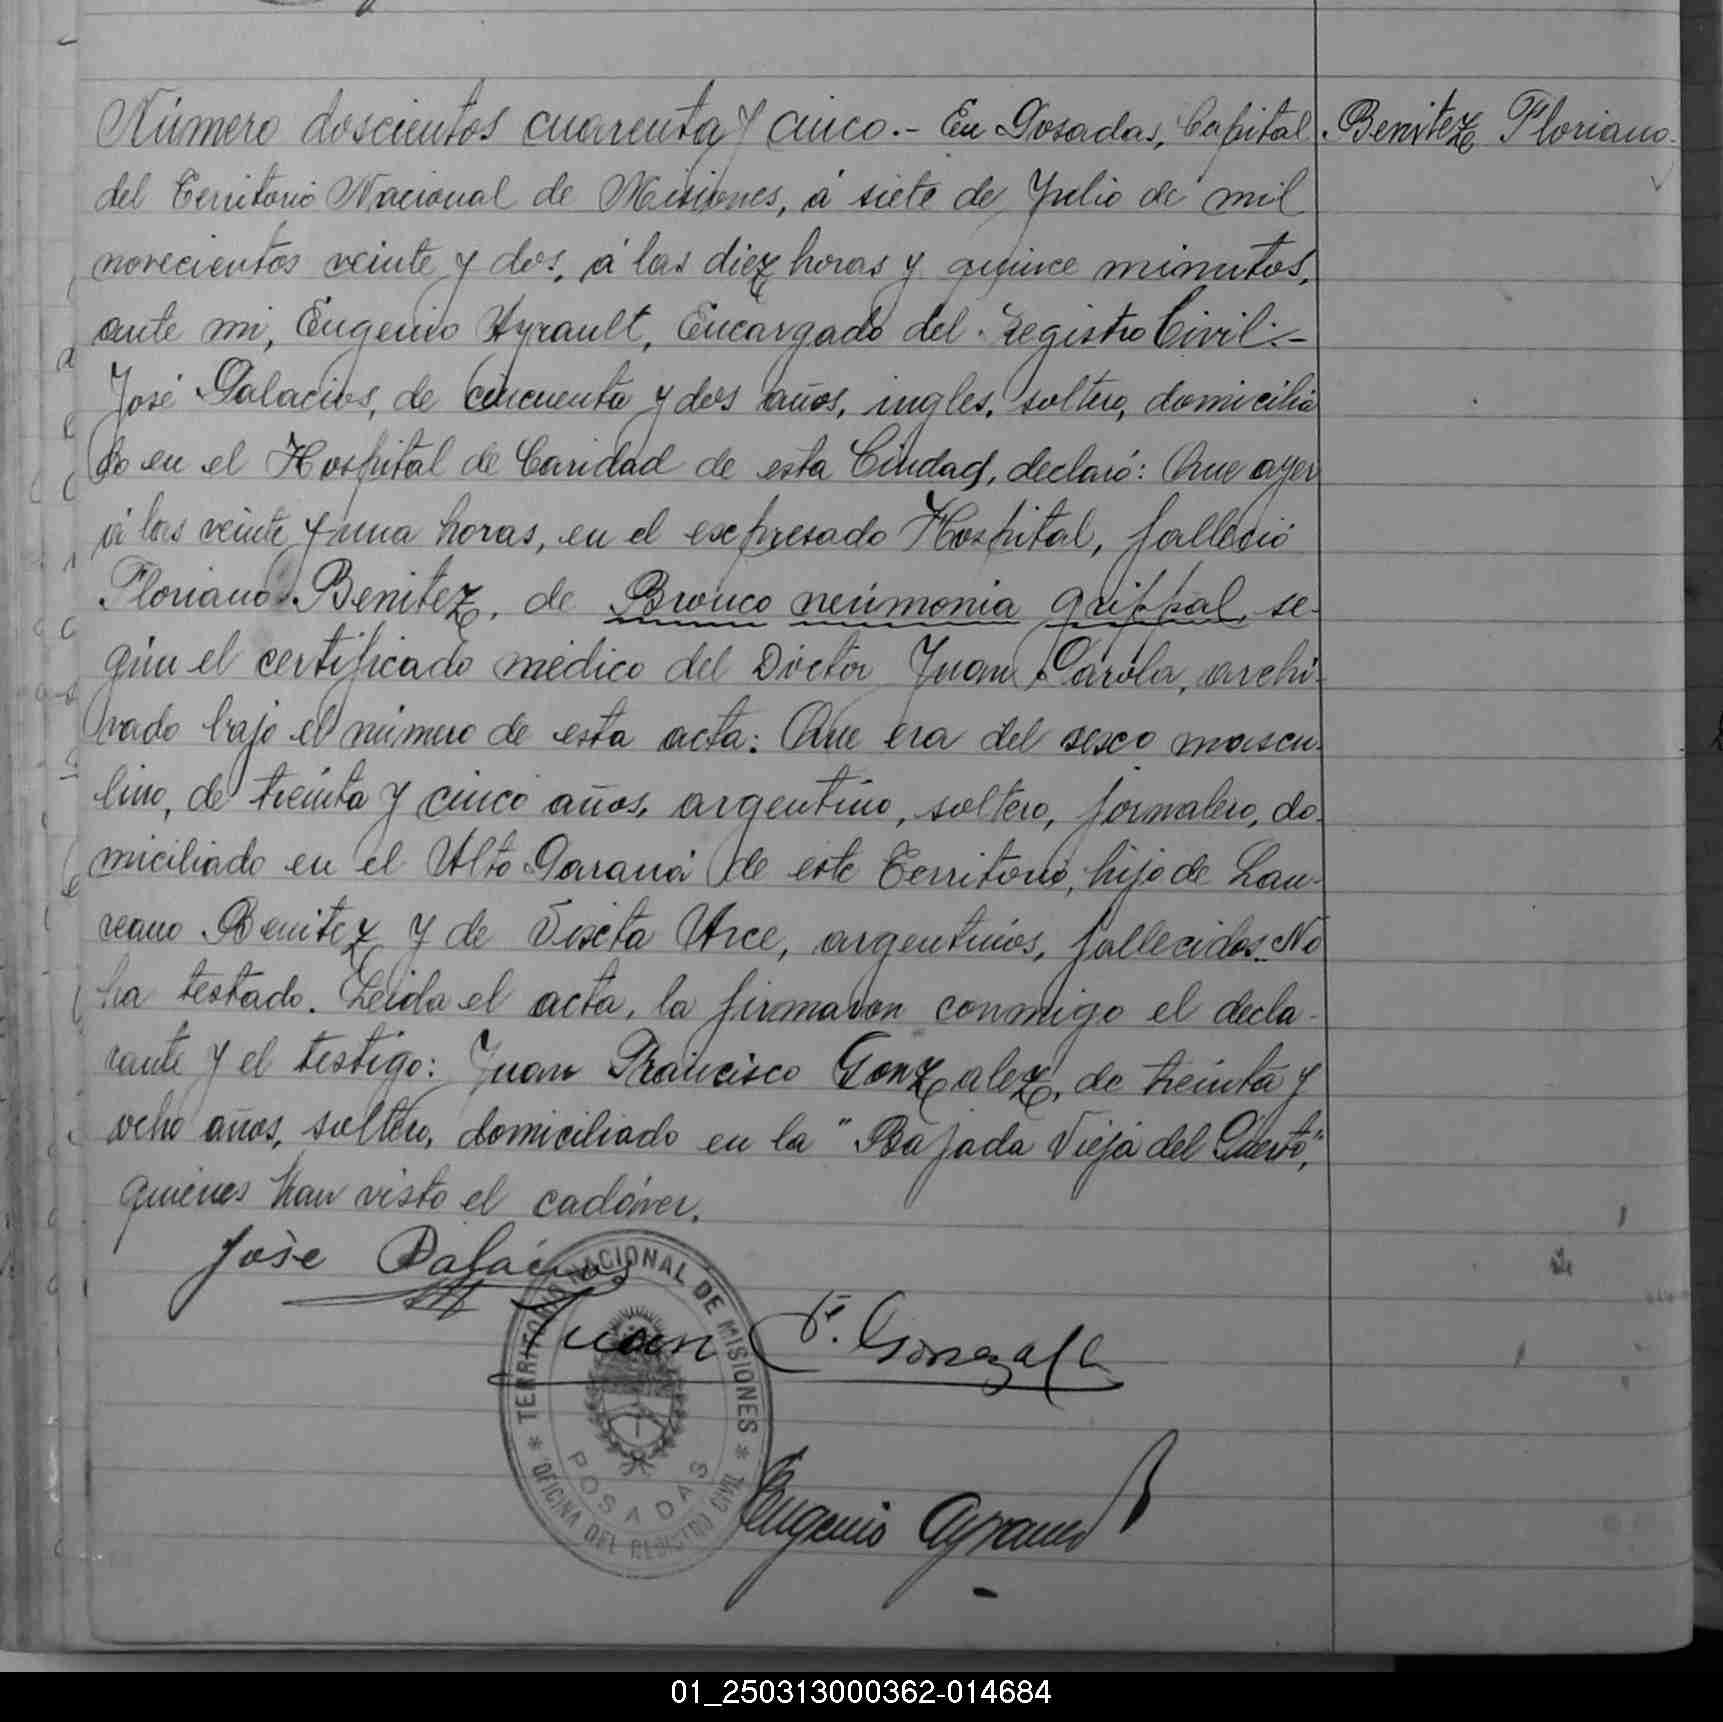 Número doscientos cuarenta y cinco.- En Posadas, Capital
Benitez Floriano.
del Territorio Nacional de Misiones, á siete de Julio de mil
novecientos veinte y dos, á las diez horas y quince minutos,
ante mi, Eugenio Ayrault, Encargado del Registro Civil:-
José Palacios, de cincuenta y dos años, ingles, soltero, domicilia
do en el Hospital de Caridad de esta Ciudad, declaró: Que ayer
á las veinte y una horas, en el expresado Hospital, falleció
Floriano Benitez, de Bronco neumonia grippal, se-
gún el certificado médico del Doctor Juan Parola, archi-
vado bajo el número de esta acta: Que era del sexo mascu-
lino, de treinta y cinco años, argentino, soltero, jornalero, do-
miciliado en el Alto Paraná de este Territorio, hijo de Lau-
reano Benitez y de Viseta Arce, argentinos, fallecidos. No
ha testado. Leida el acta, la firmaron conmigo el decla-
rante y el testigo: Juan Francisco Gonzalez, de treinta y
ocho años, soltero, domiciliado en la "Bajada Vieja del Puerto",
quienes han visto el cadáver.
José Palacios
Juan F. Gonzalez
TERRITORIO NACIONAL DE MISIONES
POSADAS
* OFICINA DEL REGISTRO CIVIL *
Eugenio Ayrault
01_250313000362-014684